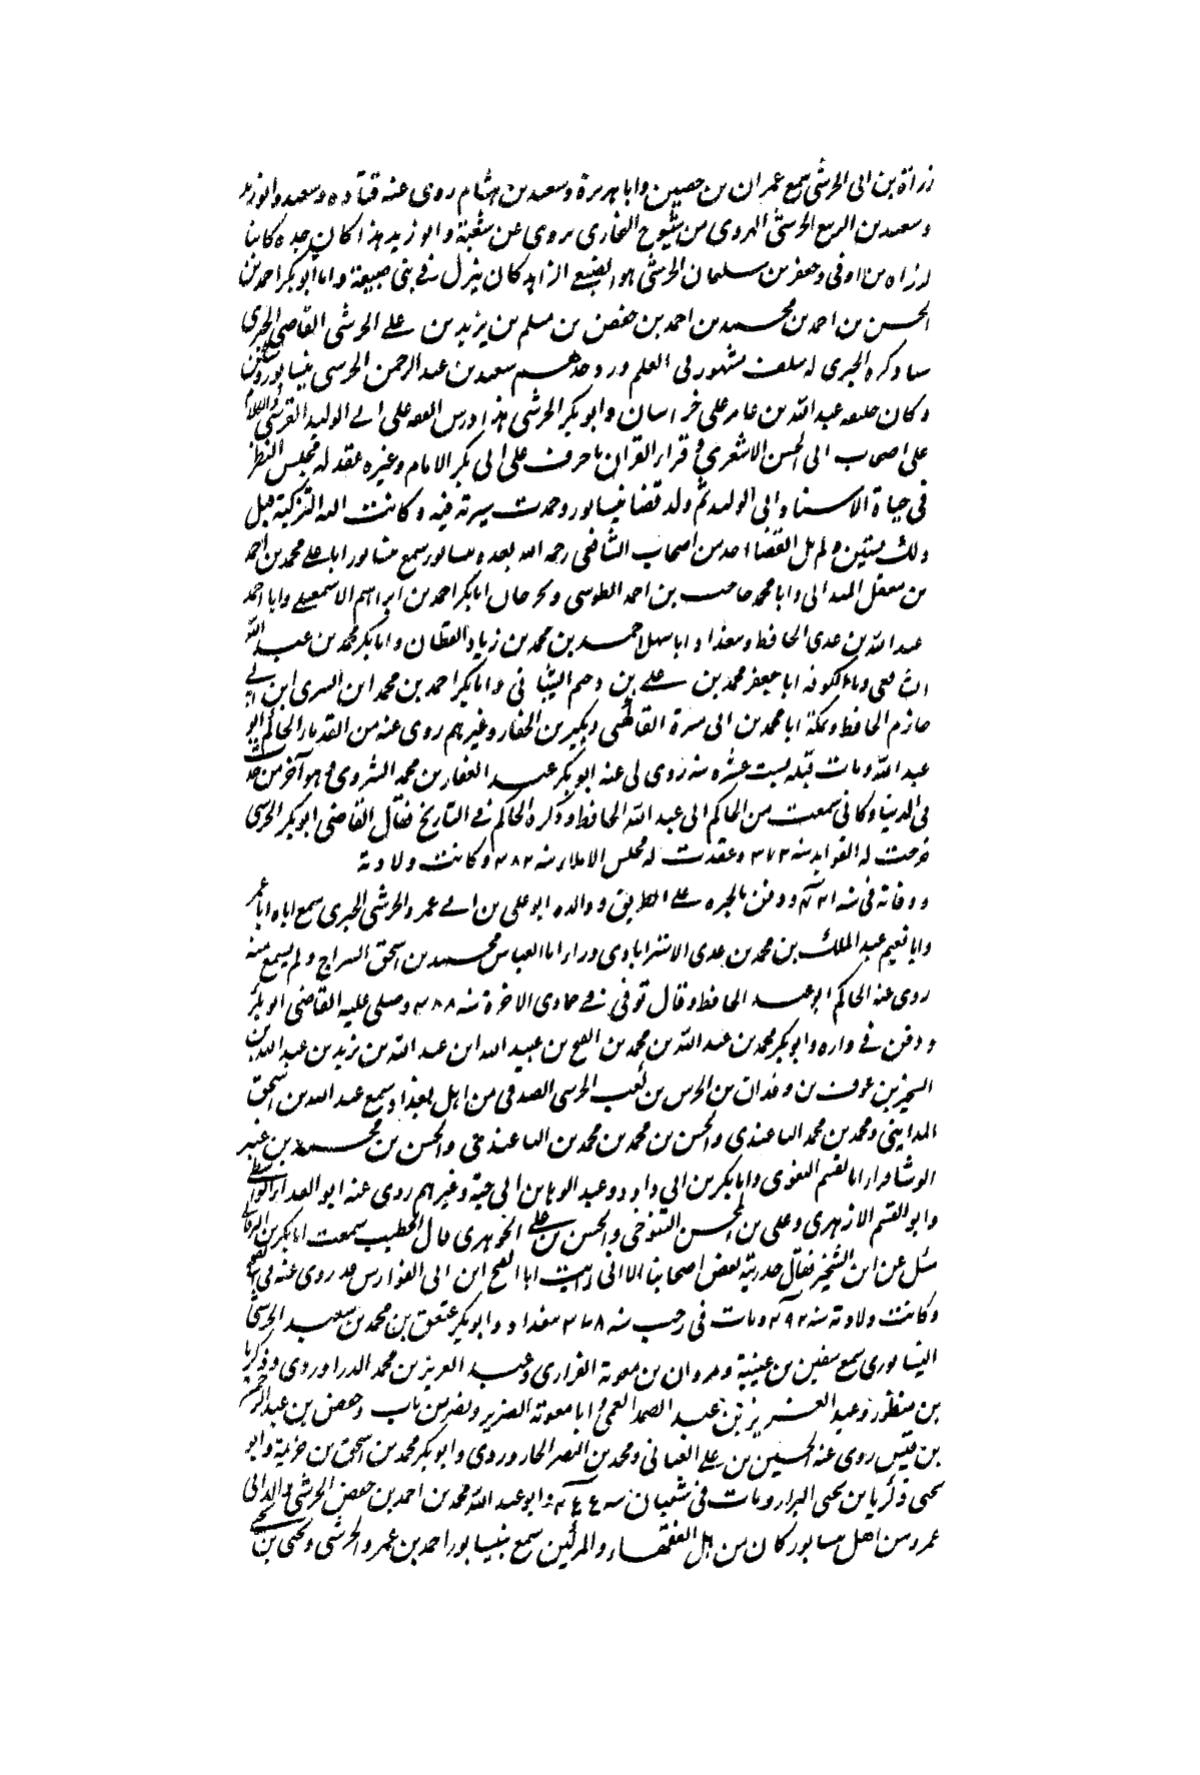 زرارة بن ابى الحرشى سمع عمران بن حصين وابا هريرة وسعيد بن هشام روى عنه قتاده وسعيد وابو زيد
وسعيد بن الربيع الحرشى الهروى من شيوخ البخارى يروى عن شعبة وابو زيد هذا كان جده كاتبا
لزراه بن اوفى وجعفر بن سليمان الحرشى هو الضبعى الزاهد كان ينزل فى بنى ضبيعة واما ابو بكر احمد بن
الحسن بن احمد بن محمد بن احمد بن حفص بن مسلم بن يزيد بن على الحرشى القاضى الحيرى
وذكره الحيرى له سلف مشهور فى العلم ورد جدهم سعيد بن عبد الرحمن الحرسى نيسابور
وكان خليفه عبد الله بن عامر على خراسان وابو بكر الحرشى هذا درس الفقه على ابى الوليد القرشى
على اصحاب ابى الحسن الاشعرى و قرا القران باحرف على ابى بكر الامام وغيره عقد له مجلس النظر
فى حياة الاستاد ابى الوليد ثم ولد قضا نيسابور وحمدت سيرته فيه وكانت اليه التزكية قبل
ذلك بستين ولم يل القضا احد من اصحاب الشافعى رحمه الله بعده سمع ابا على محمد بن احمد
بن معقل الميدانى وابا محمد حاجب بن احمد الطوسى وبجرجان ابا بكر احمد بن ابراهيم الاسمعيلى وابا احمد
عبد الله بن عدى الحافظ وببغداد ابا سهل احمد بن محمد بن زياد القطان وابا بكر محمد بن عبد الله
الشافعى وبالكوفه ابا جعفر محمد بن على بن دحيم الشيبانى وابا بكر احمد بن محمد ابن السرى ابن ابى
حازم الحافظ وبمكة ابا محمد بن ابى مسرة الفاكهى وبكير بن الحفار وغيرهم روى عنه من القدماء الحاكم ابو
عبد الله ومات قبله بست عشره سنه روى لى عنه ابو بكر عبد الغفار بن محمد الشروى وهو آخر من حدث
فى الدنيا وكانى سمعت من الحاكم ابى عبد الله الحافظ وذكره الحاكم فى التاريخ فقال القاضى ابو بكر الحرسى
خرجت له الفوايد سنه ٣٧٣ وعقدت له مجلس الاملاء سنه ٣٨٢ وكانت ولادته
ووفاته فى سنه ٤٢١ ودفن بالحيره على الطريق ووالده ابو على بن ابى عمرو الحرشى الحيرى سمع اباه ابا عمر
وابا نعيم عبد الملك بن محمد بن عدى الاستراباذى وراى ابا العباس محمد بن اسحق السراج ولم يسمع منه
روى عنه الحاكم ابو عبد الحافظ وقال توفى فى جمادى الاخرة سنه ٣٨٨ وصلى عليه القاضى ابو بكر
ودفن فى داره وابو بكر محمد بن عبد الله بن محمد بن الفتح بن عبيد الله ابن عبد الله بن زيد بن عبد الله بن
الشخير بن عوف بن وقدان بن الحرس بن كعب الحرسى الصيرفى من اهل بغداد سمع عبد الله بن اسحق
المداينى ومحمد بن محمد الباغندى والحسن بن محمد بن محمد بن الباغندى والحسن بن محمد بن عنبر
الوشا وابا القسم البغوى وابا بكر بن ابى داود وعبد الوهاب بن ابى حية وغيرهم روى عنه ابو العلاء الواسطى
وابو القسم الازهرى وعلى بن المحسن التنوخى والحسن بن على الجوهرى قال الخطيب سمعت ابا بكر البرقانى
سئل عن ابن الشخير فقال حدثنيه بعض اصحابنا الا انى رايت ابا الفتح ابن ابى الفوارس قد روى عنه فى
وكانت ولادته سنه ٢٩٢ ومات فى رجب سنه ٣٧٨ ببغداد وابو بكر عتيق بن محمد بن سعيد الحرشى
النيسابورى سمع سفين بن عيينة ومروان بن معوية الفزارى وعبد العزيز بن محمد الدراوردى وزكريا
بن منظور وعبد العزيز بن عبد الصمد العمى وابا معوية الضرير ونصر بن باب وحفص بن عبد الرحمن
بن قيس روى عنه الحسين بن على القبانى ومحمد بن النصر الجارودى وابو بكر محمد بن اسحق بن خزيمة وابو
يحيى زكريا بن يحيى البزار ومات فى شعبان سنه ٢٤٤ وابو عبد الله محمد بن احمد بن حفص الحرشى والد ابى
عمرو من اهل نيسابور كان من اهل الفقهاء والمزكين سمع بنيسابور احمد بن عمرو الحرشى ويحيى بن يحيى